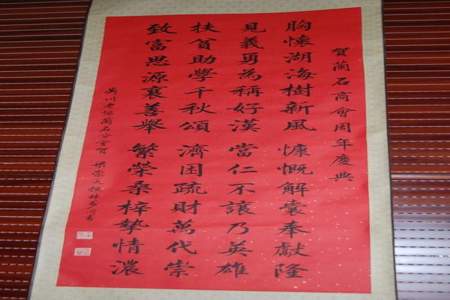 賀蘭石商會周年慶典
胸懷湖海樹新風 慷慨解囊奉獻隆
見義勇為稱好漢 當仁不讓乃英雄
扶貧助學千秋頌 濟困疏財萬代崇
致富思源襄善舉 繁榮桑梓摯情濃
吳川老 蘭石分會賀